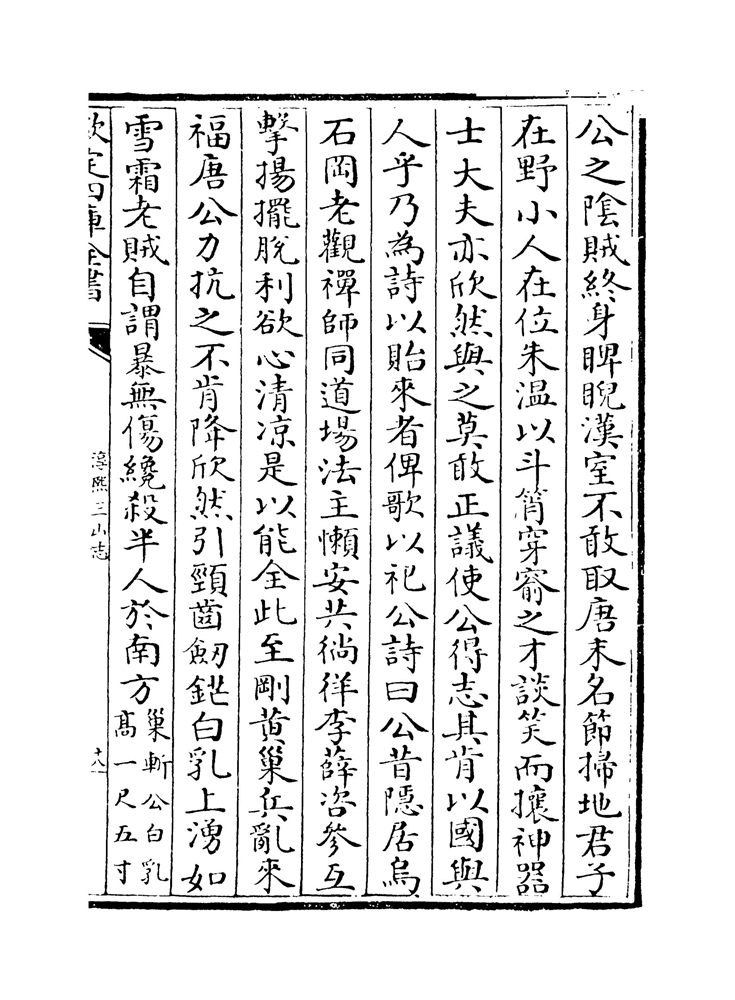 公之陰賊終身睥睨漢室不敢取唐末名節掃地君子
在野小人在位朱温以斗筲穿窬之才談笑而攘神器
士大夫亦欣然與之莫敢正議使公得志其肯以國與
人乎乃為詩以貽來者俾歌以祀公詩曰公昔隱居烏
石岡老觀禪師同道場法主懶安共徜徉李薛咨參互
擊揚擺脫利欲心清凉是以能全此至剛黄巢兵亂來
福唐公力抗之不肯降欣然引頸齒劒鋩白乳上湧如
雪霜老賊自謂暴無傷纔殺半人於南方巢斬公白乳
高一尺五寸
欽定四庫全書
淳熙三山志
十八